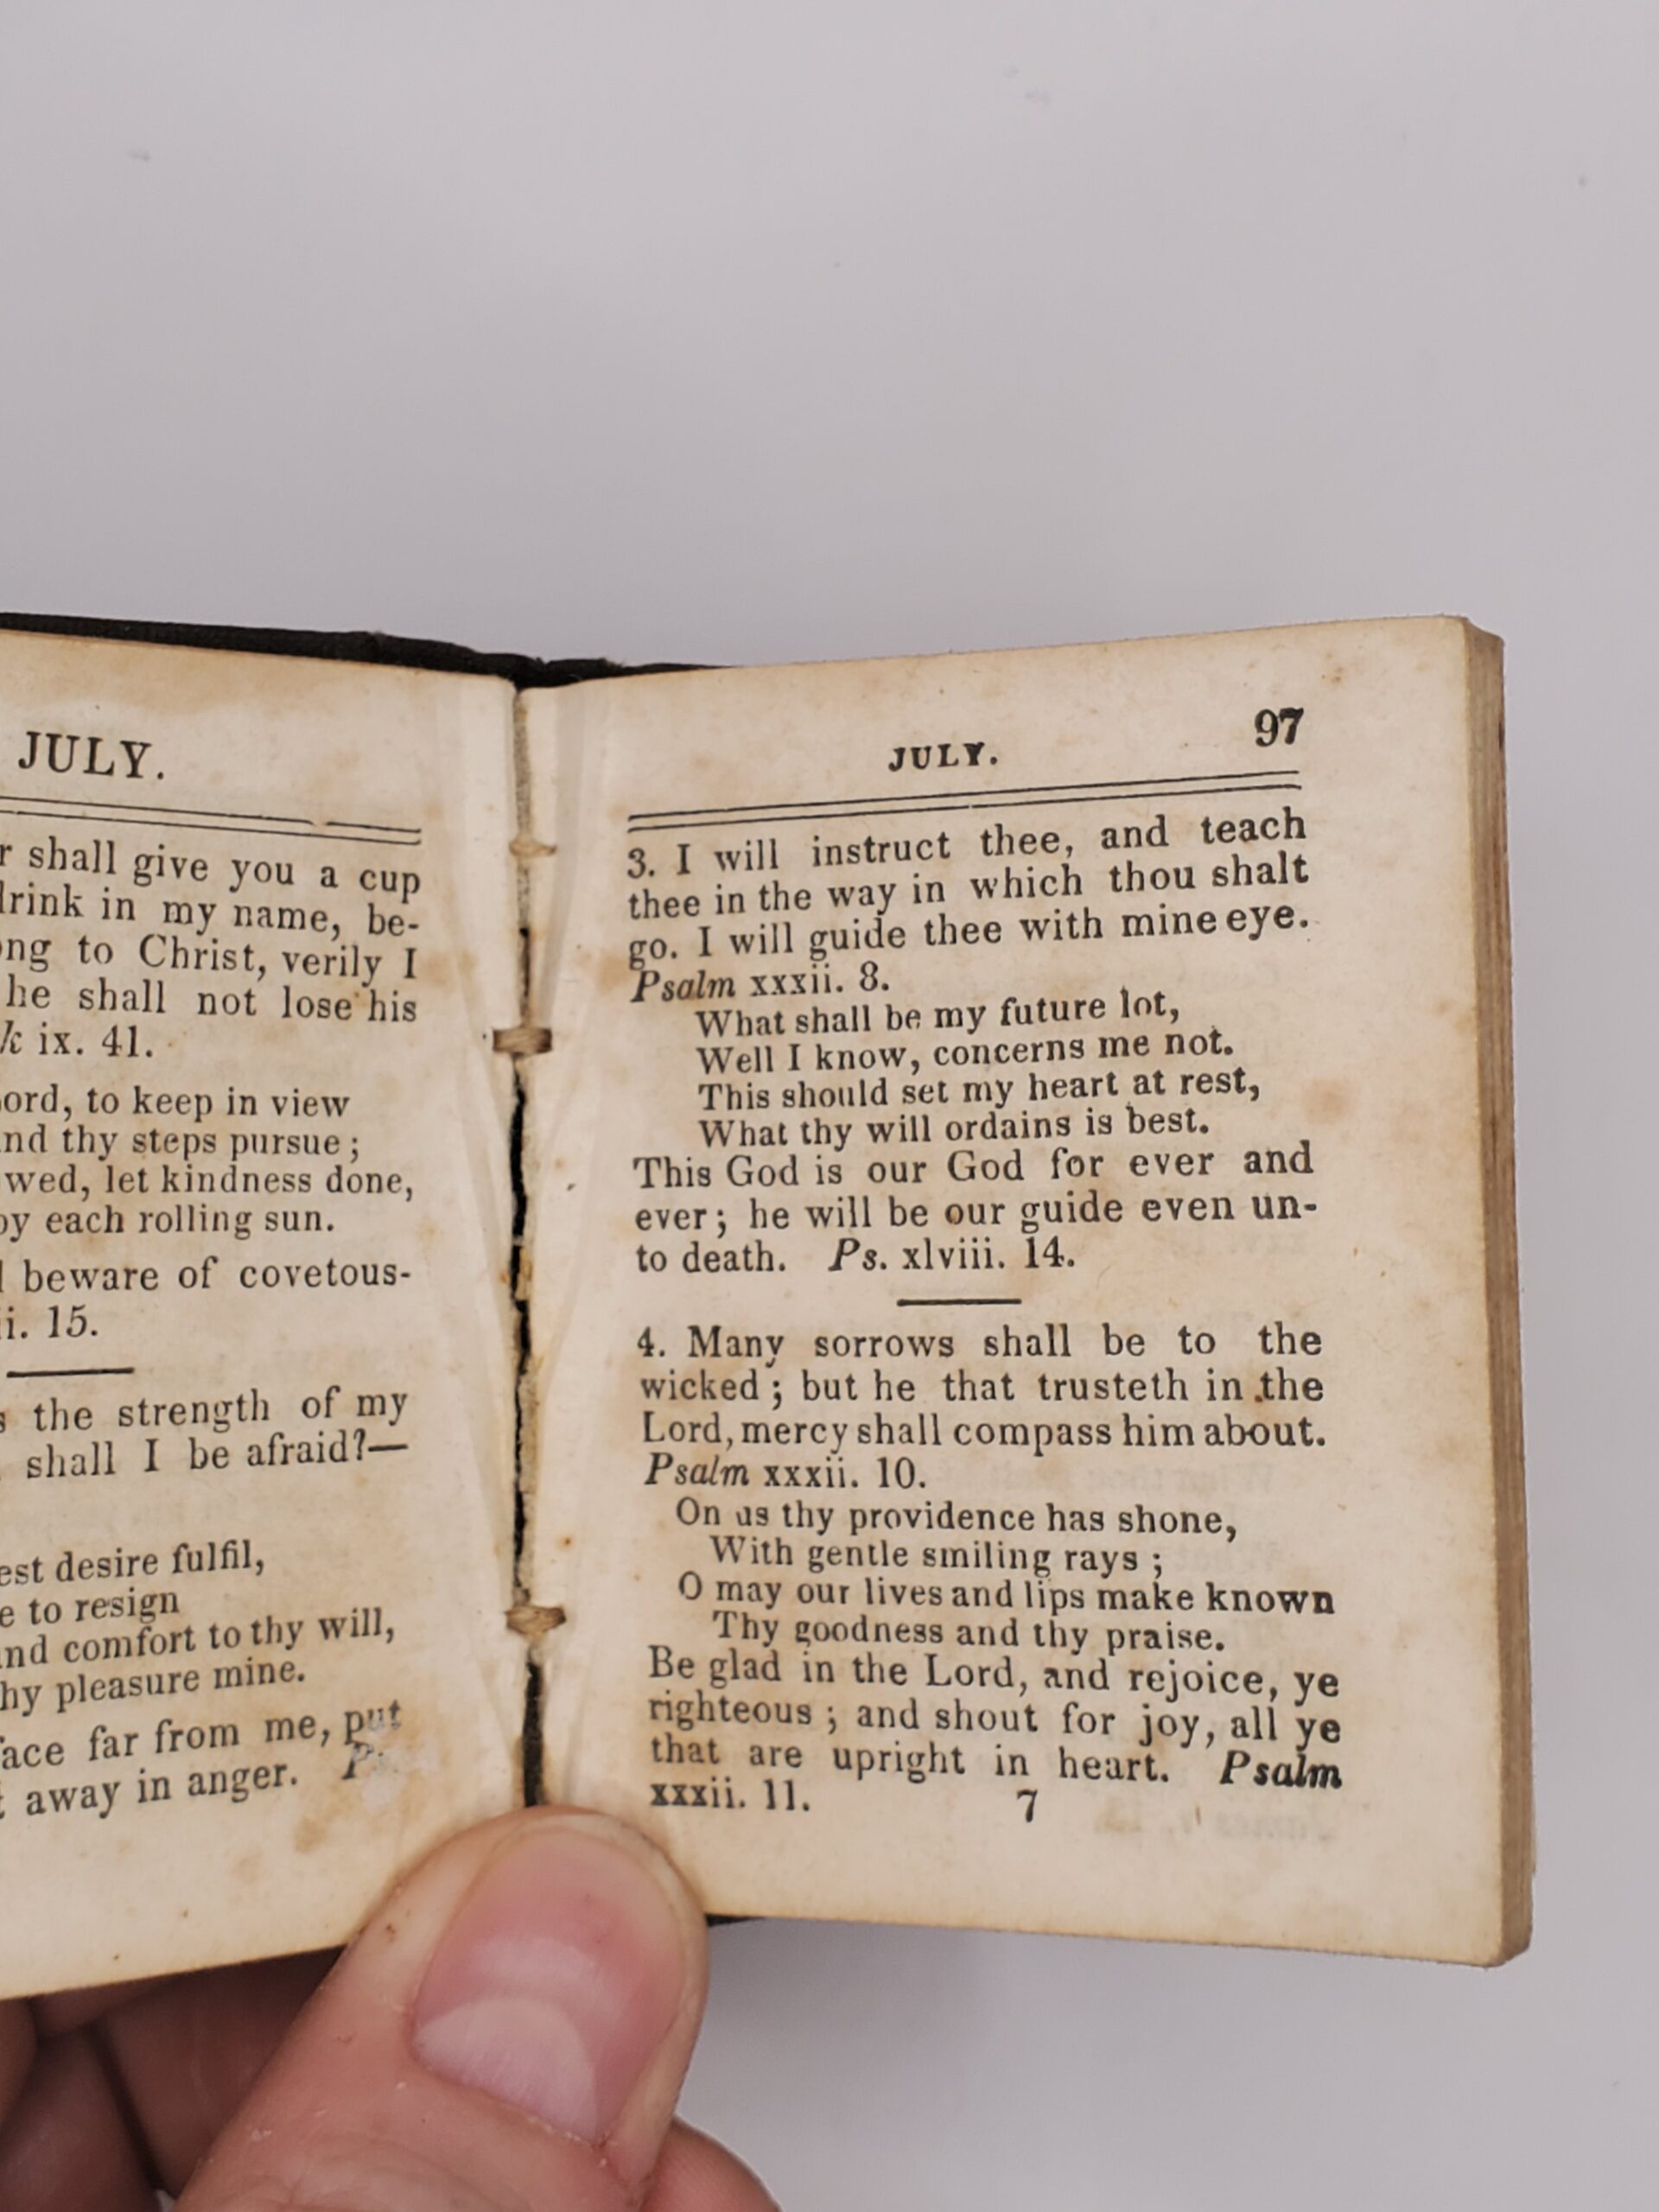 JULY.
shall give you a cup
drink in my name, be-
to Christ, verily I
he shall not lose his
ix. 41.
to keep in view
thy steps pursue;
let kindness done,
each rolling sun.
beware of covetous-
15.
the strength of my
shall I be afraid?—
desire fulfil,
to resign
comfort to thy will,
pleasure mine.
far from me, put
away in anger.
97
JULY.
3. I will instruct thee, and teach
thee in the way in which thou shalt
go. I will guide thee with mine eye.
Psalm xxxii. 8.
What shall be my future lot,
Well I know, concerns me not.
This should set my heart at rest,
What thy will ordains is best.
This God is our God for ever and
ever; he will be our guide even un-
to death. Ps. xlviii. 14.
4. Many sorrows shall be to the
wicked; but he that trusteth in the
Lord, mercy shall compass him about.
Psalm xxxii. 10.
On us thy providence has shone,
With gentle smiling rays;
O may our lives and lips make known
Thy goodness and thy praise.
Be glad in the Lord, and rejoice, ye
righteous; and shout for joy, all ye
that are upright in heart. Psalm
xxxii. 11. 7